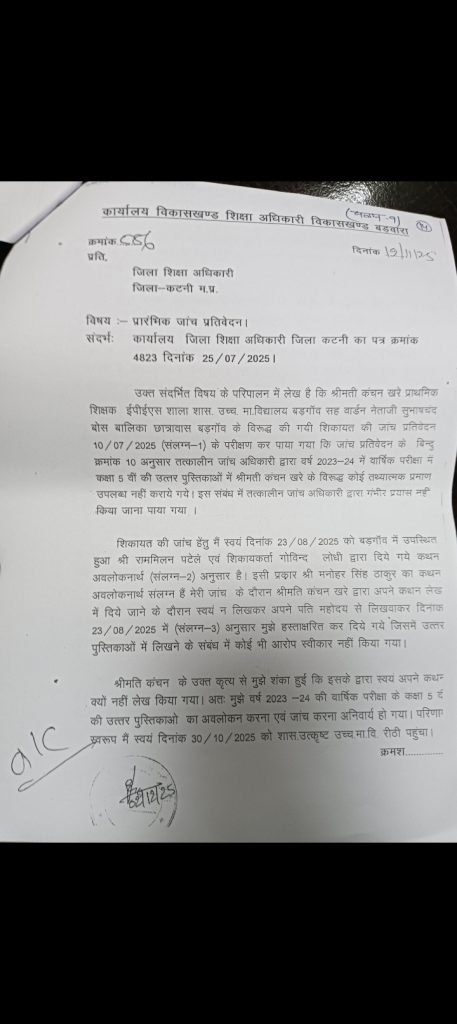 (संलग्न-1)
कार्यालय विकासखण्ड शिक्षा अधिकारी विकासखण्ड बड़वारा
क्रमांक 556
दिनांक 19/11/25
प्रति,
जिला शिक्षा अधिकारी
जिला–कटनी म.प्र.
विषय :– प्रारंभिक जांच प्रतिवेदन।
संदर्भः कार्यालय जिला शिक्षा अधिकारी जिला कटनी का पत्र क्रमांक
4823 दिनांक 25/07/2025।
उक्त संदर्भित विषय के परिपालन में लेख है कि श्रीमती कंचन खरे प्राथमिक
शिक्षक ईपीईएस शाला शास. उच्च. मा.विद्यालय बड़गॉव सह वार्डन नेताजी सुभाषचंद
बोस बालिका छात्रावास बड़गॉव के विरूद्ध की गयी शिकायत की जांच प्रतिवेदन
10/07/2025 (संलग्न–1) के परीक्षण कर पाया गया कि जांच प्रतिवेदन के बिन्दु
क्रमांक 10 अनुसार तत्कालीन जांच अधिकारी द्वारा वर्ष 2023–24 में वार्षिक परीक्षा में
कक्षा 5 वीं की उत्तर पुस्तिकाओं में श्रीमती कंचन खरे के विरूद्ध कोई तथ्यात्मक प्रमाण
उपलब्ध नहीं कराये गये। इस संबंध में तत्कालीन जांच अधिकारी द्वारा गंभीर प्रयास नहीं
किया जाना पाया गया ।
शिकायत की जांच हेतु मैं स्वयं दिनांक 23/08/2025 को बड़गॉव में उपस्थित
हुआ श्री राममिलन पटेले एवं शिकायकर्ता गोविन्द लोधी द्वारा दिये गये कथन
अवलोकनार्थ (संलग्न–2) अनुसार है। इसी प्रकार श्री मनोहर सिंह ठाकुर का कथन
अवलोकनार्थ संलग्न हैं मेरी जांच के दौरान श्रीमति कंचन खरे द्वारा अपने कथन लेख
में दिये जाने के दौरान स्वयं न लिखकर अपने पति महोदय से लिखवाकर दिनांक
23/08/2025 में (संलग्न–3) अनुसार मुझे हस्ताक्षरित कर दिये गये जिसमें उत्तर
पुस्तिकाओं में लिखने के संबंध में कोई भी आरोप स्वीकार नहीं किया गया।
श्रीमति कंचन के उक्त कृत्य से मुझे शंका हुई कि इसके द्वारा स्वयं अपने कथन
क्यों नहीं लेख किया गया। अतः मुझे वर्ष 2023 –24 की वार्षिक परीक्षा के कक्षा 5 वं
की उत्तर पुस्तिकाओ का अवलोकन करना एवं जांच करना अनिवार्य हो गया। परिणाम
स्वरूप मैं स्वयं दिनांक 30/10/2025 को शास.उत्कृष्ट उच्च.मा.वि. रीठी पहुंचा।
क्रमश...............
O/C